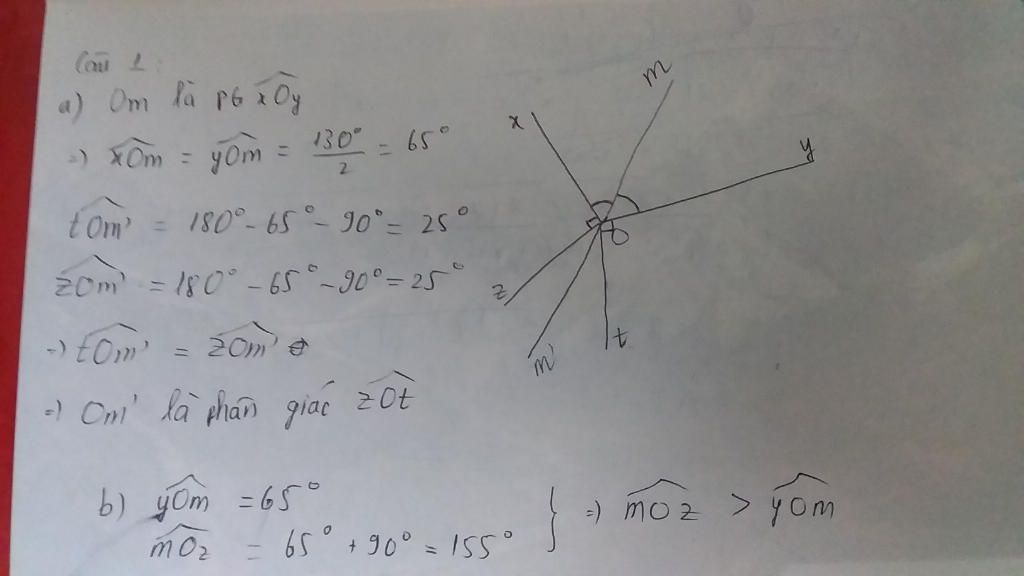 Câu 1:
a) Om là pg x̂Oy
=) x̂Om = ŷOm = 130°/2 = 65°
t̂Om' = 180° - 65° - 90° = 25°
ẑOm' = 180° - 65° - 90° = 25°
=) t̂Om' = ẑOm'
=) Om' là phân giác ẑOt
b) ŷOm = 65°
m̂Oz = 65° + 90° = 155° } =) m̂Oz > ŷOm
x
m
y
O
z
m'
t